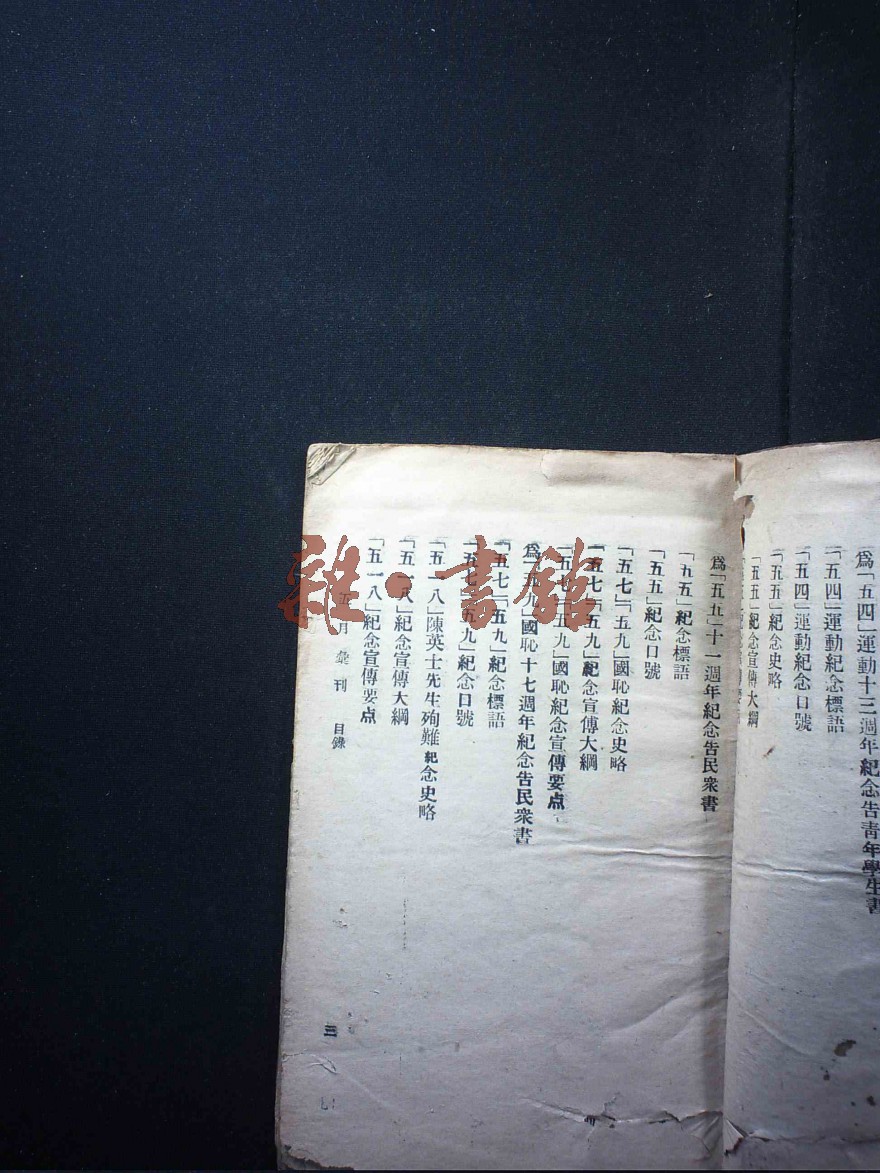 為「五四」運動十三週年紀念告青年學生書
「五四」運動紀念標語
「五四」運動紀念口號
「五五」紀念史略
「五五」紀念宣傳大綱
為「五五」十一週年紀念告民衆書
「五五」紀念標語
「五五」紀念口號
「五七」「五九」國恥紀念史略
「五七」「五九」紀念宣傳大綱
「五七」「五九」國恥紀念宣傳要点
為「五九」國恥十七週年紀念告民衆書
「五七」「五九」紀念標語
「五七」「五九」紀念口號
「五一八」陳英士先生殉難紀念史略
「五一八」紀念宣傳大綱
「五一八」紀念宣傳要点
五月彙刊 目錄
三
雜·書館